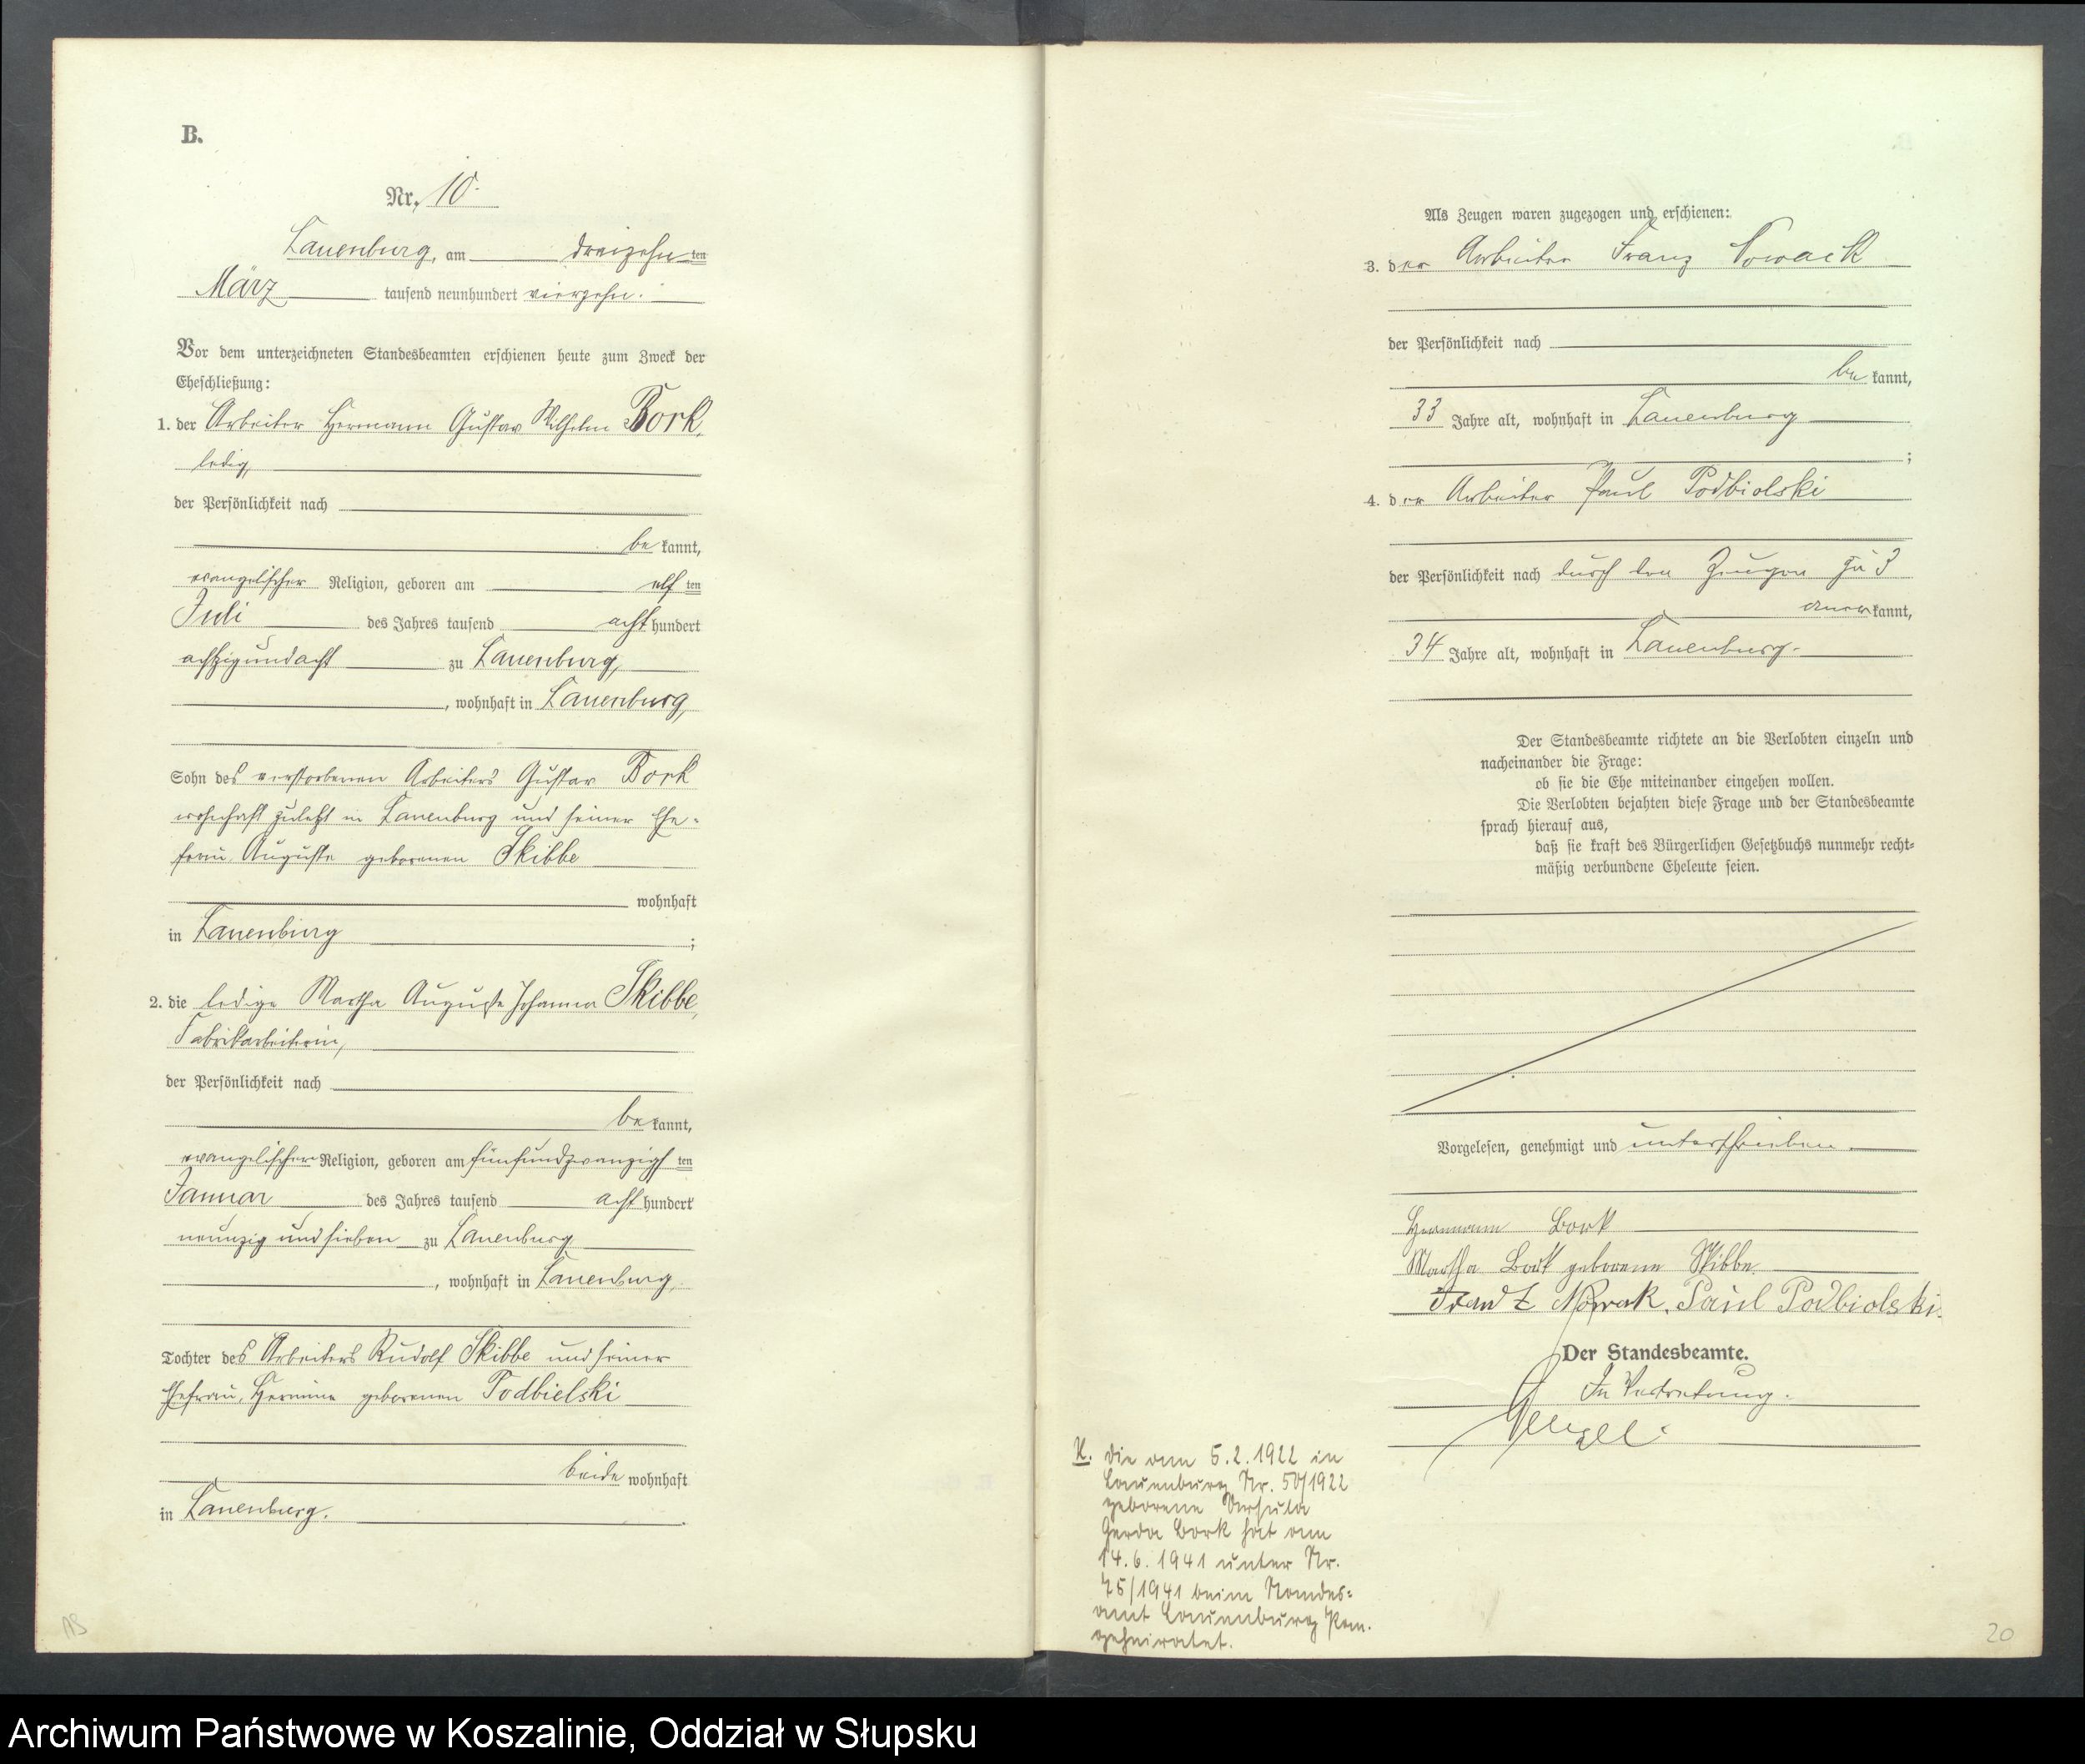 B.
Nr. 10.
Lauenburg, am dreizehn ten
März tausend neunhundert vierzehn.
Vor dem unterzeichneten Standesbeamten erschienen heute zum Zweck der
Eheschließung:
1. der Arbeiter Hermann Gustav Wilhelm Bork,
ledig,
der Persönlichkeit nach
be kannt,
evangelischer Religion, geboren am elf ten
Juli des Jahres tausend acht hundert
achtzigundacht zu Lauenburg,
, wohnhaft in Lauenburg,
Sohn des verstorbenen Arbeiters Gustav Bork
wohnhaft zuletzt in Lauenburg und seiner Ehe-
frau Auguste geborenen Skibbe
wohnhaft
in Lauenburg ;
2. die ledige Martha Auguste Johanna Skibbe,
Fabrikarbeiterin,
der Persönlichkeit nach
be kannt,
evangelischer Religion, geboren am fünfundzwanzigst ten
Januar des Jahres tausend acht hundert
neunzig und sieben zu Lauenburg
, wohnhaft in Lauenburg,
Tochter des Arbeiters Rudolf Skibbe und seiner
Ehefrau, Hermine geborenen Podbielski
beide wohnhaft
in Lauenburg.
19
Als Zeugen waren zugezogen und erschienen:
3. der Arbeiter Franz Nowack
der Persönlichkeit nach
be kannt,
33 Jahre alt, wohnhaft in Lauenburg
;
4. der Arbeiter Paul Podbiolski
der Persönlichkeit nach durch den Zeugen zu 3
aner kannt,
34 Jahre alt, wohnhaft in Lauenburg.
Der Standesbeamte richtete an die Verlobten einzeln und
nacheinander die Frage:
ob sie die Ehe miteinander eingehen wollen.
Die Verlobten bejahten diese Frage und der Standesbeamte
sprach hierauf aus,
daß sie kraft des Bürgerlichen Gesetzbuchs nunmehr recht-
mäßig verbundene Eheleute seien.
Vorgelesen, genehmigt und unterschrieben.
Hermann Bork
Martha Bork geborene Skibbe
Frantz Nowak, Paul Podbiolski.
Der Standesbeamte.
In Vertretung.
K. Die am 5.2.1922 in
Lauenburg Nr. 50/1922
geborene Ursula
Gerda Bork hat am
14.6.1941 unter Nr.
75/1941 beim Standes-
amt Lauenburg Pom.
geheiratet.
20
Archiwum Państwowe w Koszalinie, Oddział w Słupsku